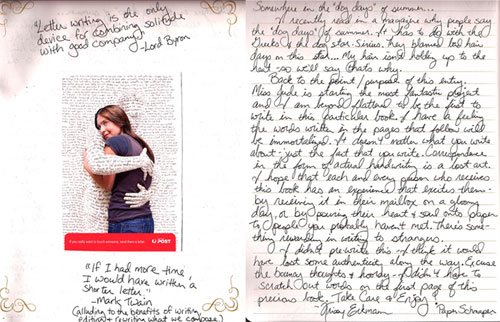 "Letter writing is the only
device for combining solitude
with good company."
-Lord Byron
If you really want to touch someone, send them a letter.
POST
"If I had more time,
I would have written a
shorter letter."
-Mark Twain
(alluding to the benefits of writing,
editing & rewriting what we compose.)
Somewhere in the "dog days" of summer...
I recently read in a magazine why people say
the "dog days" of summer. It has to do with the
Greeks & the dog star-Sirius. They blamed bad hair
days on this star... My hair isn't holding up to the
heat so we'll say that's why.
Back to the point/purpose of this entry.
Miss Jude is starting the most fantastic project
and I am beyond flattered to be the first to
write in this particular book. I have a feeling
the words written in the pages that follow will
be immortalized. It doesn't matter what you write
about-just the fact that you write. Correspondence
in the form of actual handwriting is a lost art.
I hope that each and every person who receives
this book has an experience that excites them-
by receiving it in their mailbox on a gloomy
day, or by pouring their heart & soul onto paper
to people you probably haven't met. There's some-
thing rewarding in writing to strangers.
I didn't pre-write this - I think it would
have lost some authenticity along the way. Excuse
the bouncy thoughts & hooray-I didn't have to
scratch out words on the first page of this
precious book. Take Care & Enjoy!
"Paper Schnapper"